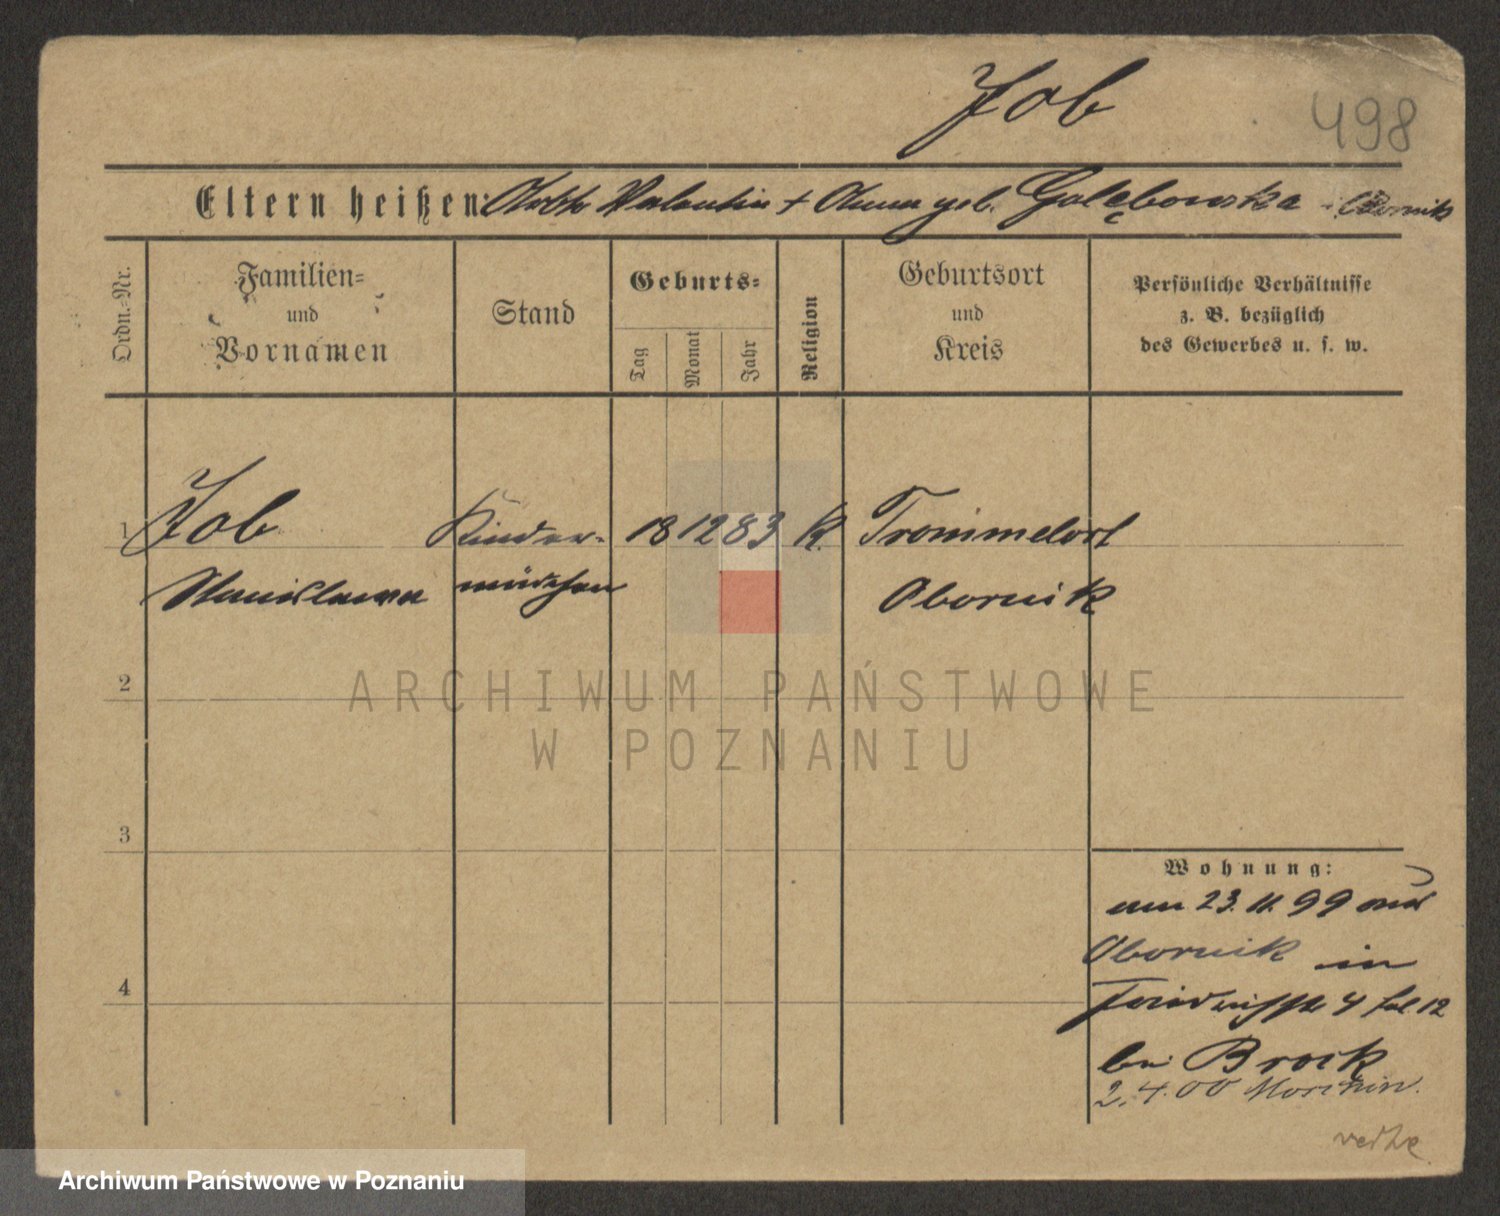 Job
498
Eltern heißen: Valentin + Anna geb. Golębowska - Obornik
Ordn.-Nr.
Familien-
und
Vornamen
Stand
Geburts-
Tag
Monat
Jahr
Religion
Geburtsort
und
Kreis
Persönliche Verhältnisse
z. B. bezüglich
des Gewerbes u. s. w.
1 Job Kinder- 18 12 83 K. Trommelort
Stanislawa mädchen Obornik
2
ARCHIWUM PAŃSTWOWE
W POZNANIU
3
4
Wohnung:
am 23. 11. 99 aus
Obornik in
4 12
bei Brock
2. 4. 00
Archiwum Państwowe w Poznaniu